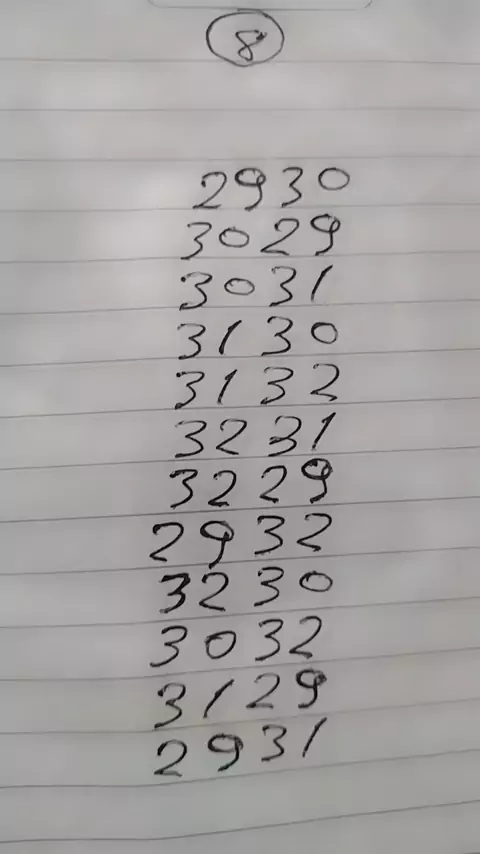 8
2930
3029
3031
3130
3132
3231
3229
2932
3230
3032
3129
2931